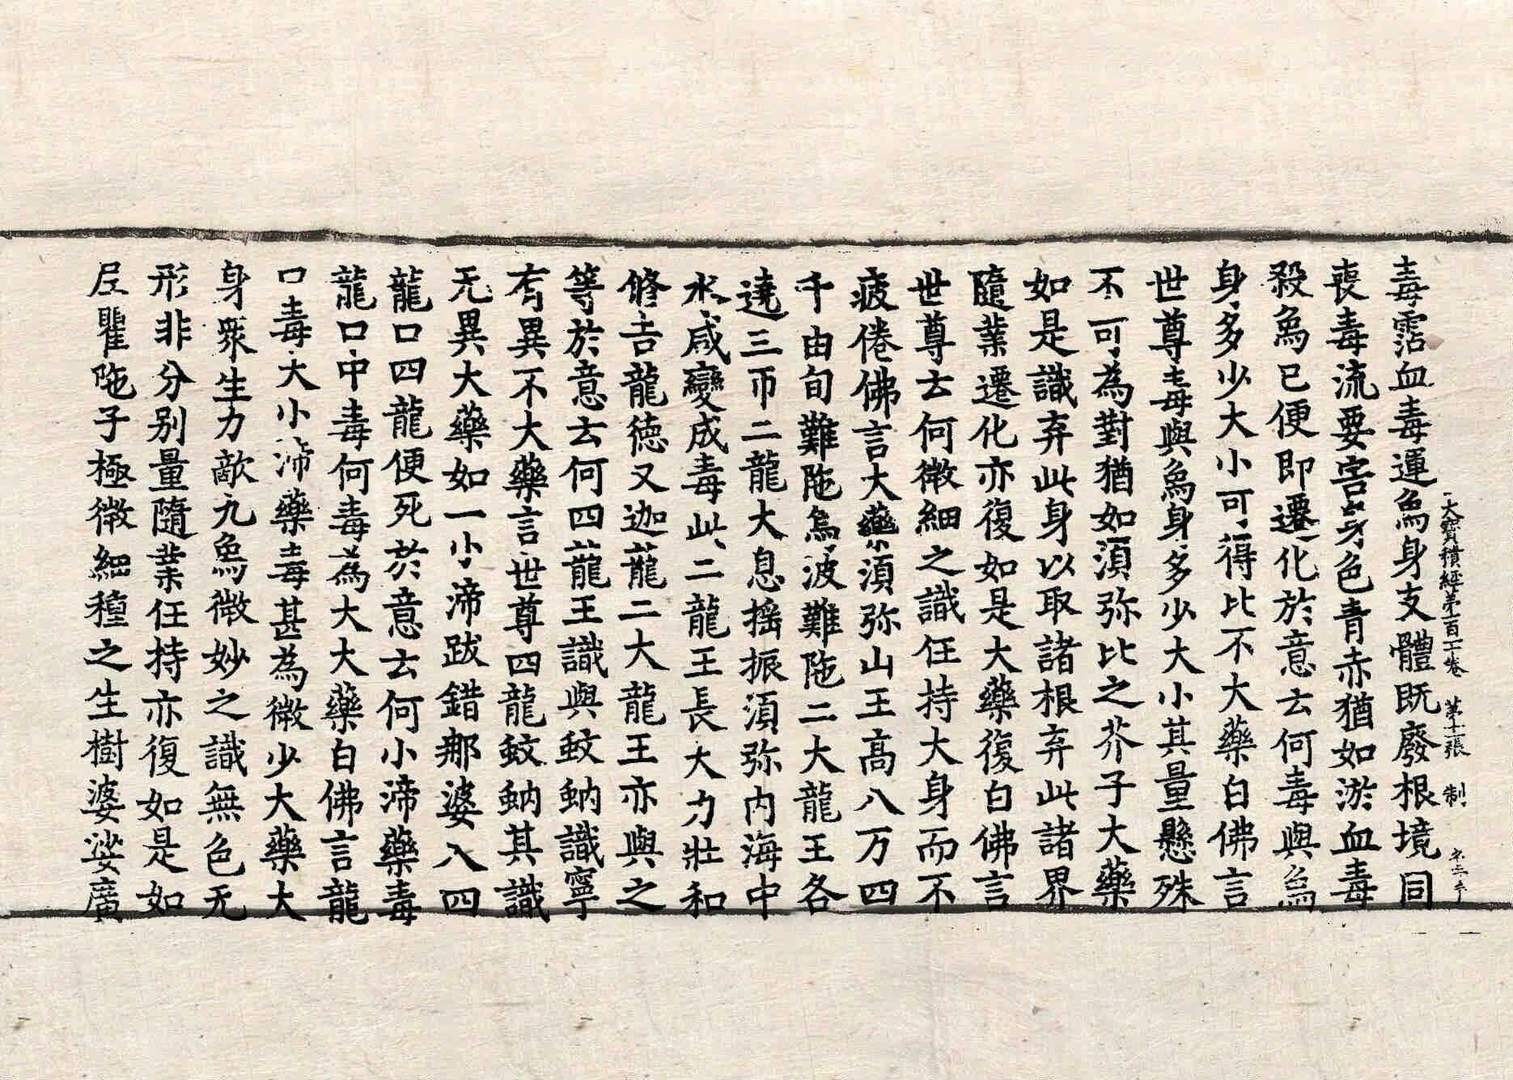 大寶積經第一百十卷 第十二張 制
毒霑血毒運象身支體既廢根境同
喪毒流要害身色青赤猶如淤血毒
殺象已便即遷化於意云何毒與象
身多少大小可得比不大藥白佛言
世尊毒與象身多少大小其量懸殊
不可為對猶如湏弥比之芥子大藥
如是識弃此身以取諸根弃此諸界
隨業遷化亦復如是大藥復白佛言
世尊云何微細之識任持大身而不
疲倦佛言大藥湏弥山王高八万四
千由旬難陁烏波難陁二大龍王各
遶三帀二龍大息摇振湏弥内海中
水咸變成毒此二龍王長大力壯和
修吉龍德叉迦龍二大龍王亦與之
等於意云何四龍王識與蚊蚋識寧
有異不大藥言世尊四龍蚊蚋其識
无異大藥如一小渧跋錯那婆入四
龍口四龍便死於意云何小渧藥毒
龍口中毒何毒為大大藥白佛言龍
口毒大小渧藥毒甚為微少大藥大
身衆生力敵九象微妙之識無色无
形非分別量隨業任持亦復如是如
尼瞿陁子極微細種之生樹婆娑廣